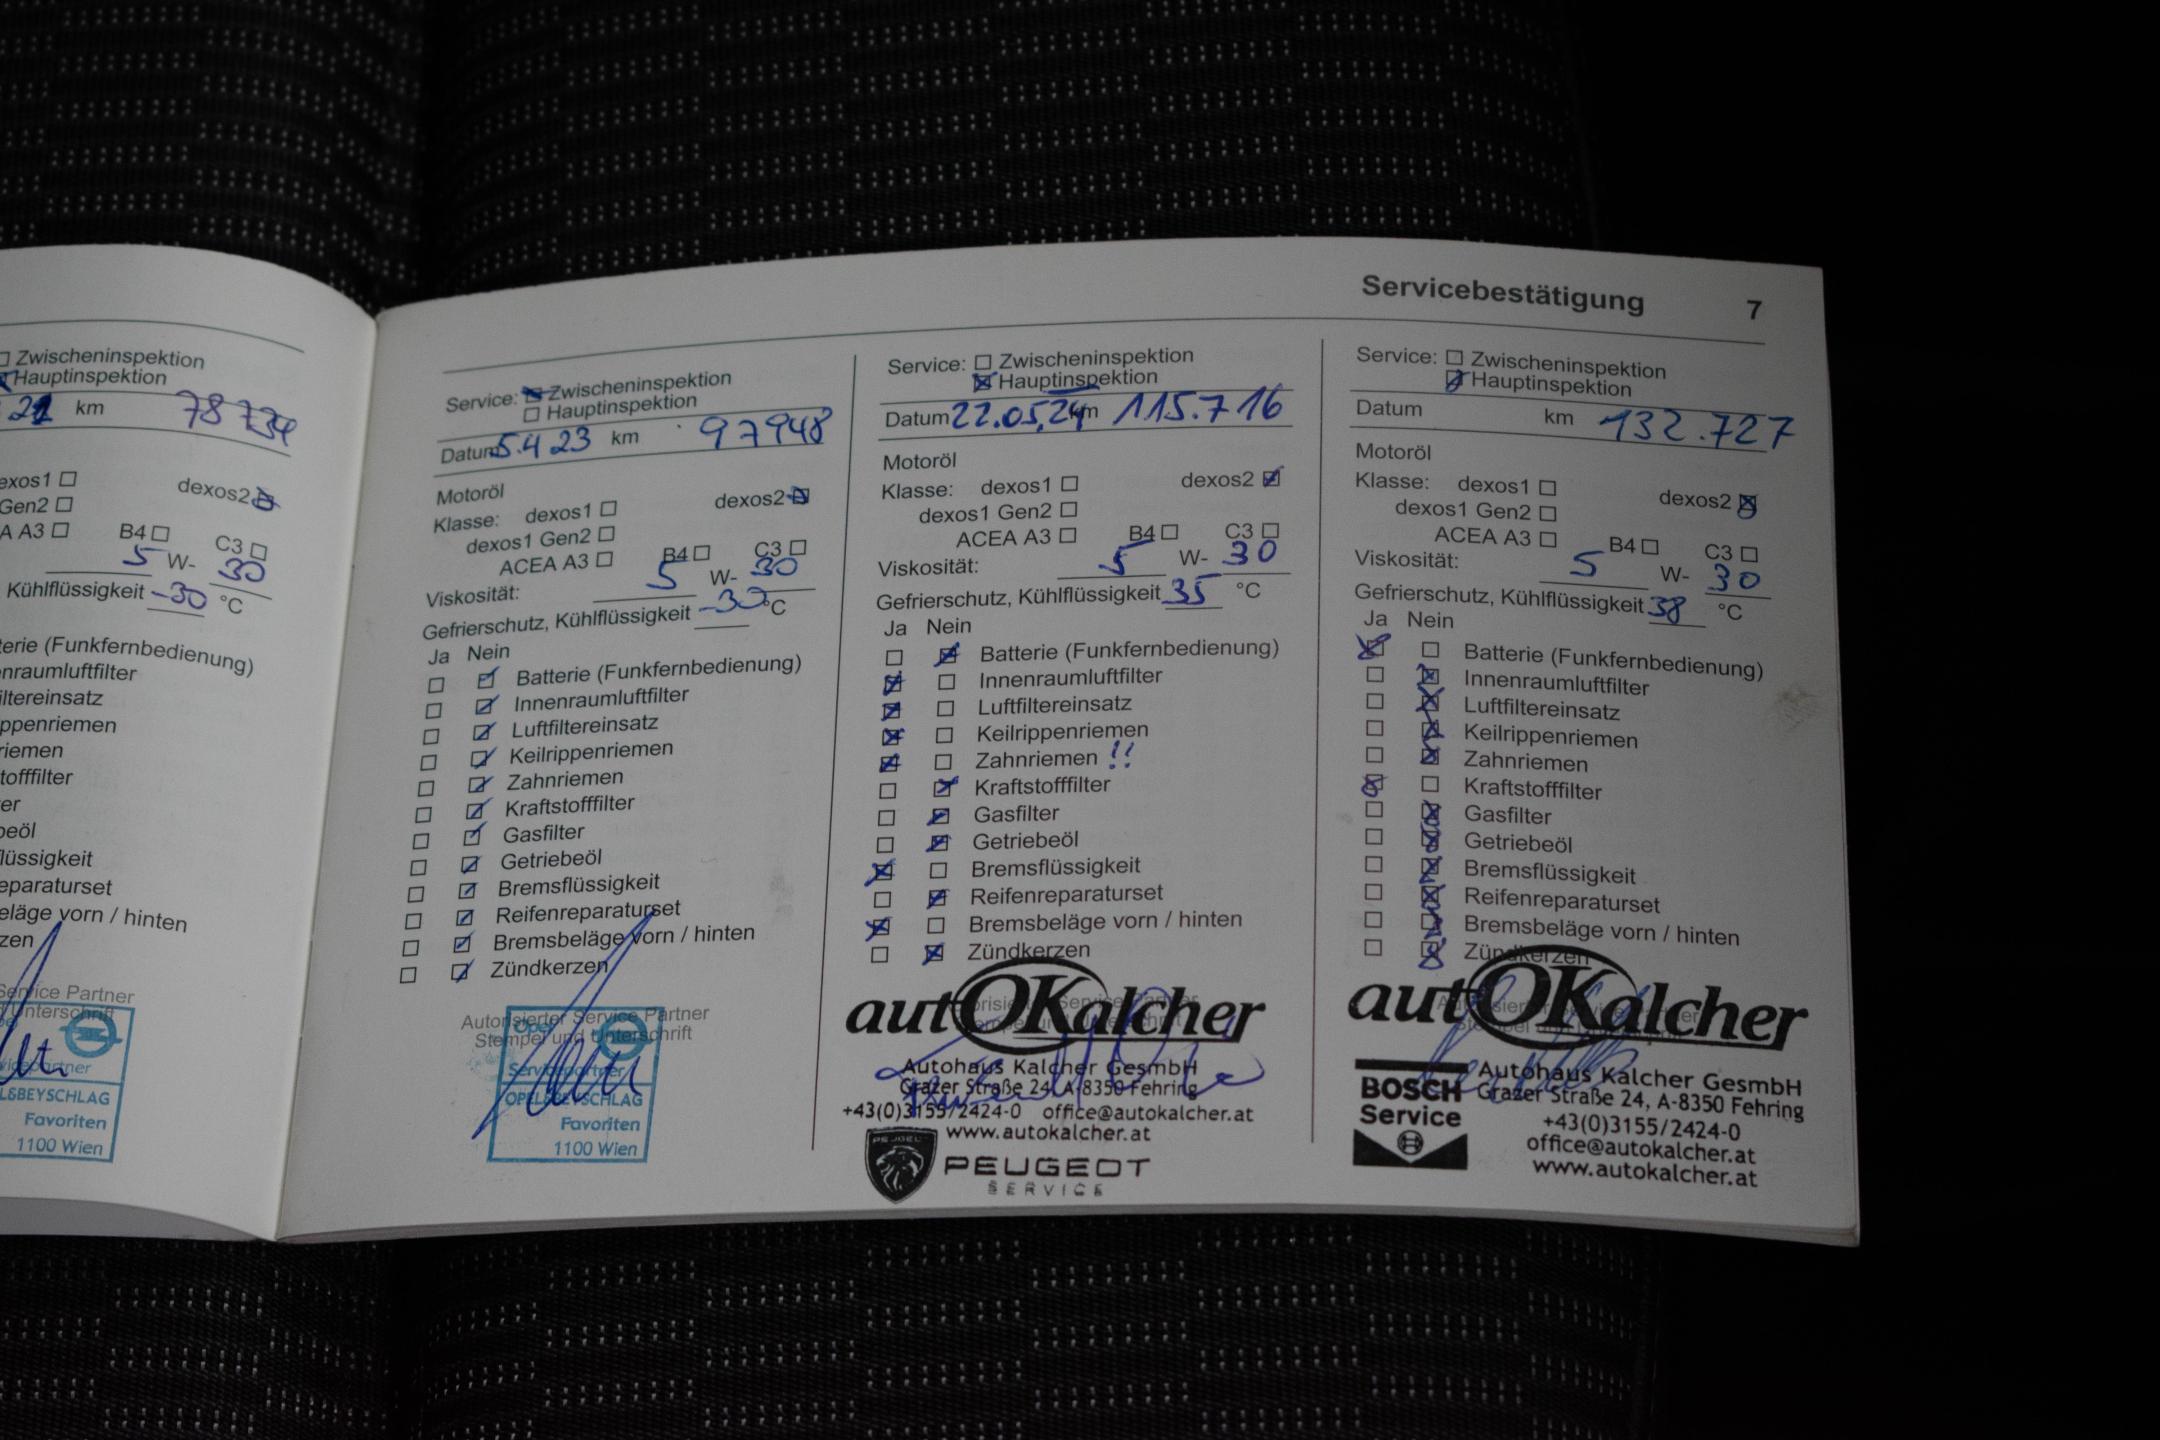 Zwischeninspektion
Hauptinspektion
km 78734
dexos1 dexos2
Gen2
A3 B4 C3
5 W- 30
Kühlflüssigkeit -30 °C
terie (Funkfernbedienung)
nraumluftfilter
iltereinsatz
ippenriemen
riemen
tofffilter
er
beöl
lüssigkeit
eparaturset
eläge vorn / hinten
zen
Service Partner
Unterschrift
vicepartner
L&BEYSCHLAG
Favoriten
1100 Wien
Servicebestätigung 7
Service: Zwischeninspektion
Hauptinspektion
Datum 5.4 23 km 97948
Motoröl
Klasse: dexos1 dexos2
dexos1 Gen2
ACEA A3 B4 C3
Viskosität: 5 W- 30
Gefrierschutz, Kühlflüssigkeit -30 °C
Ja Nein
Batterie (Funkfernbedienung)
Innenraumluftfilter
Luftfiltereinsatz
Keilrippenriemen
Zahnriemen
Kraftstofffilter
Gasfilter
Getriebeöl
Bremsflüssigkeit
Reifenreparaturset
Bremsbeläge vorn / hinten
Zündkerzen
Autorisierter Service Partner
Stempel und Unterschrift
Opel
Servicepartner
OPEL&BEYSCHLAG
Favoriten
1100 Wien
Service: Zwischeninspektion
Hauptinspektion
Datum 22.05.24 km 115.716
Motoröl
Klasse: dexos1 dexos2
dexos1 Gen2
ACEA A3 B4 C3
Viskosität: 5 W- 30
Gefrierschutz, Kühlflüssigkeit 35 °C
Ja Nein
Batterie (Funkfernbedienung)
Innenraumluftfilter
Luftfiltereinsatz
Keilrippenriemen
Zahnriemen !!
Kraftstofffilter
Gasfilter
Getriebeöl
Bremsflüssigkeit
Reifenreparaturset
Bremsbeläge vorn / hinten
Zündkerzen
autOKalcher
Autohaus Kalcher GesmbH
Grazer Straße 24, A-8350 Fehring
+43(0)3155/2424-0 office@autokalcher.at
www.autokalcher.at
PEUGEOT
PEUGEOT
SERVICE
Service: Zwischeninspektion
Hauptinspektion
Datum km 132.727
Motoröl
Klasse: dexos1 dexos2
dexos1 Gen2
ACEA A3 B4 C3
Viskosität: 5 W- 30
Gefrierschutz, Kühlflüssigkeit 38 °C
Ja Nein
Batterie (Funkfernbedienung)
Innenraumluftfilter
Luftfiltereinsatz
Keilrippenriemen
Zahnriemen
Kraftstofffilter
Gasfilter
Getriebeöl
Bremsflüssigkeit
Reifenreparaturset
Bremsbeläge vorn / hinten
Zündkerzen
autOKalcher
BOSCH
Service
Autohaus Kalcher GesmbH
Grazer Straße 24, A-8350 Fehring
+43(0)3155/2424-0
office@autokalcher.at
www.autokalcher.at